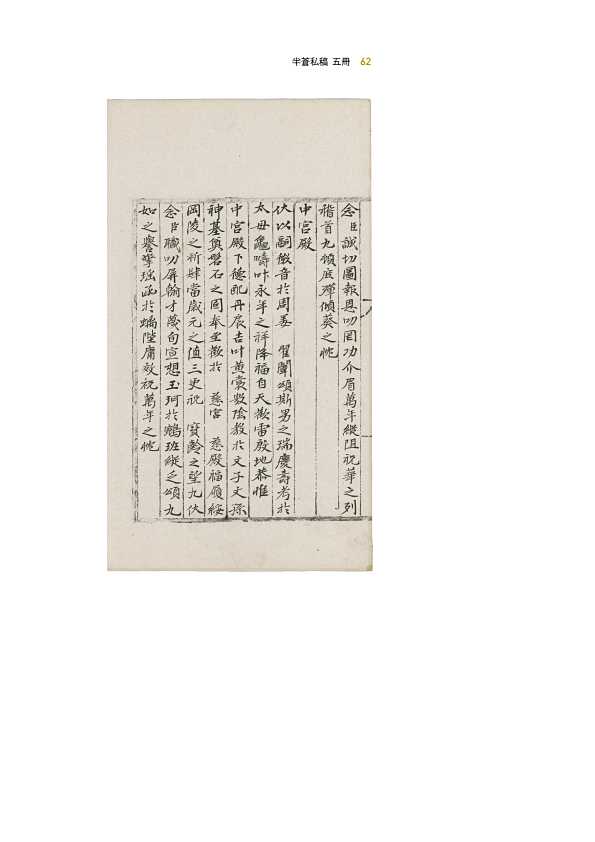 半蒼私稿 五冊 62
念臣誠切圖報恩叨罔功介眉萬年縱阻祝華之列
稽首九傾庶殫傾葵之忱
中宮殿
伏以嗣徽音於周姜 翟闈頌斯男之瑞慶壽考於
太母龜疇叶永年之祥降福自天歡雷殷地恭惟
中宮殿下德配丹扆吉叶黃裳敷陰敎於文子文孫
神基奠磐石之固奉至歡於 慈宮 慈殿福履綏
岡陵之祈肆當歲元之值三史祝 寶齡之望九伏
念臣職叨屛翰才蔑旬宣想玉珂於鵷班縱乏頌九
如之譽擎瑤函於螭陛庸效祝萬年之忱